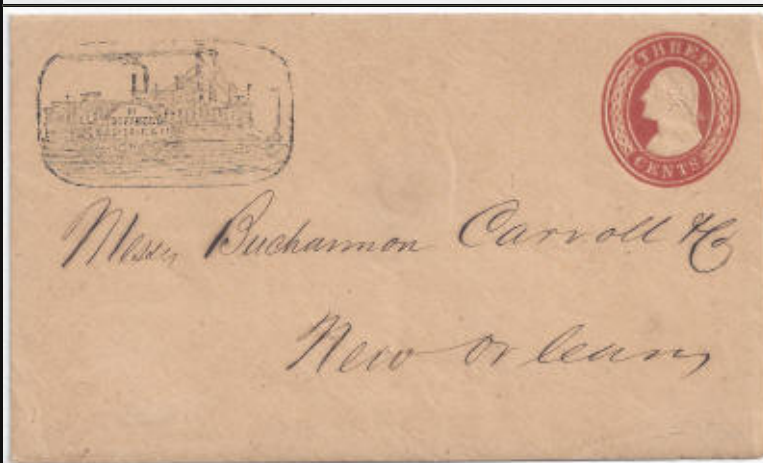 THREE
CENTS
Messrs Buchannon Carroll & Co
New Orleans